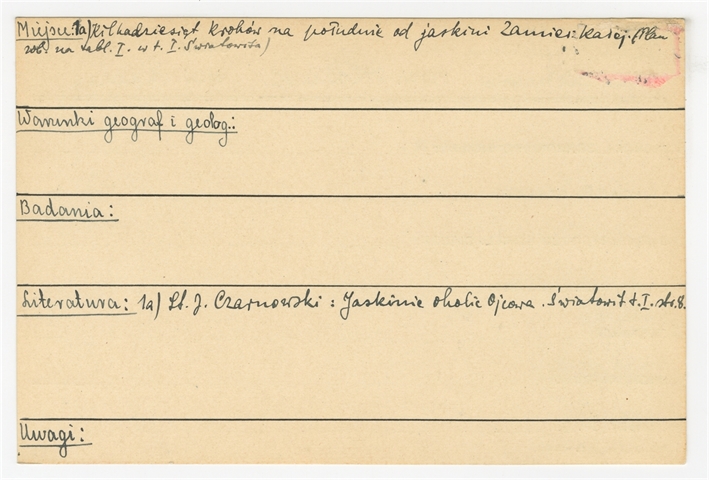 Miejsce: 1a) Kilkadziesiąt kroków na południe od jaskini Zamieszkałej. (Plan
zob. na tabl. I. w t. I. Światowita)
Warunki geograf i geolog.:
Badania:
Literatura: 1a) St. J. Czarnowski: Jaskinie okolic Ojcowa. Światowit t. I. str. 8.
Uwagi: